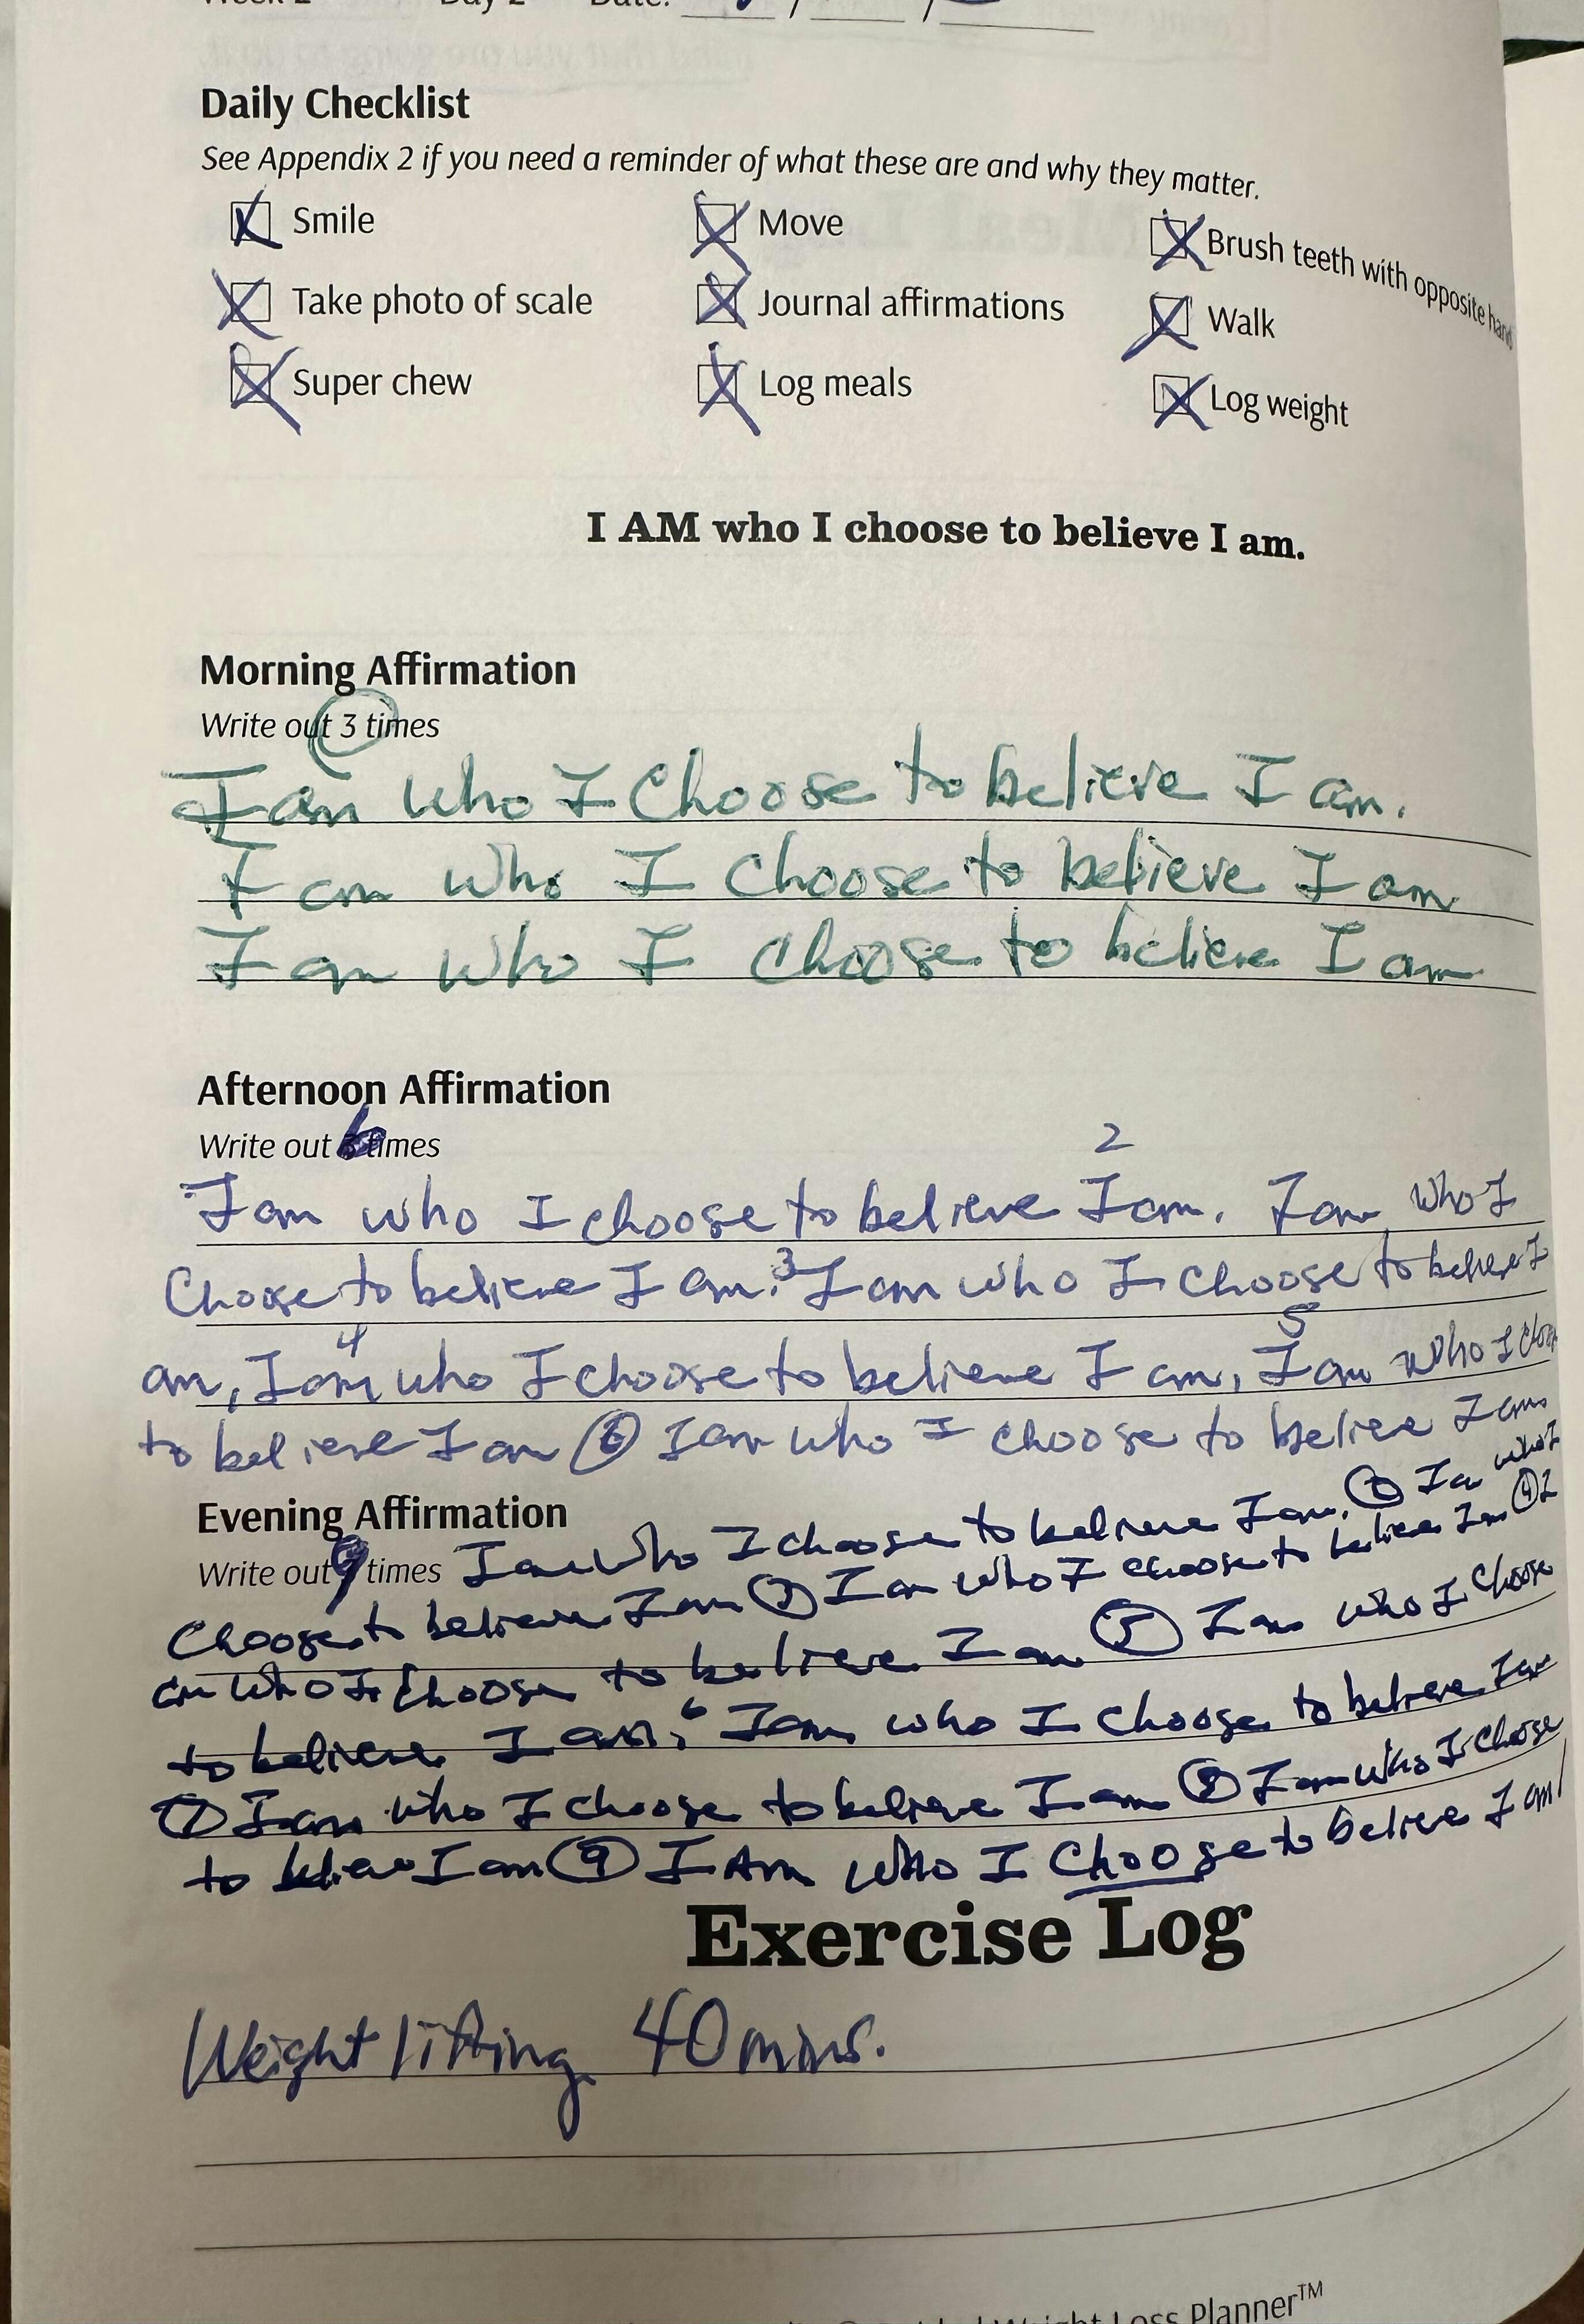 Week 2 Day 2 Date: / /
Daily Checklist
See Appendix 2 if you need a reminder of what these are and why they matter.
Smile Move Brush teeth with opposite hand
Take photo of scale Journal affirmations Walk
Super chew Log meals Log weight
I AM who I choose to believe I am.
Morning Affirmation
Write out 3 times
I am who I Choose to believe I am.
I am who I Choose to believe I am
I am who I Choose to believe I am
Afternoon Affirmation
Write out 6 times
2
I am who I choose to believe I am. I am who I
Choose to believe I am. 3 I am who I choose to believe I
4 5
am, I am who I choose to believe I am, I am who I choose
to believe I am 6 I am who I choose to believe I am
Evening Affirmation
Write out 9 times I am who I choose to believe I am. 2 I am who I
Choose to believe I am 3 I am who I choose to believe I am 4 I
am who I choose to believe I am 5 I am who I choose
to believe I am. 6 I am who I choose to believe I am
7 I am who I choose to believe I am 8 I am who I choose
to believe I am 9 I Am who I Choose to believe I am!
Exercise Log
Weight lifting 40 mins.
Weight Loss Planner™